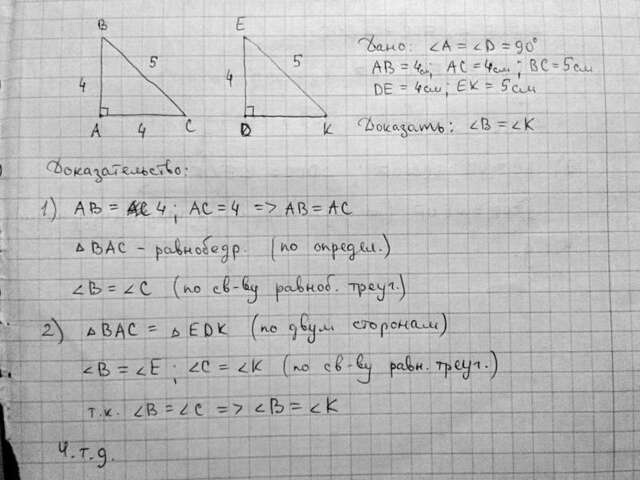 B
E
4
5
4
5
A
4
C
D
K
Дано: ∠A = ∠D = 90°
AB = 4см; AC = 4см; BC = 5см
DE = 4см; EK = 5см
Доказать: ∠B = ∠K
Доказательство:
1) AB = 4; AC = 4 => AB = AC
△ BAC - равнобедр. (по определ.)
∠B = ∠C (по св-ву равноб. треуг.)
2) △ BAC = △ EDK (по двум сторонам)
∠B = ∠E; ∠C = ∠K (по св-ву равн. треуг.)
т.к. ∠B = ∠C => ∠B = ∠K
Ч.т.д.